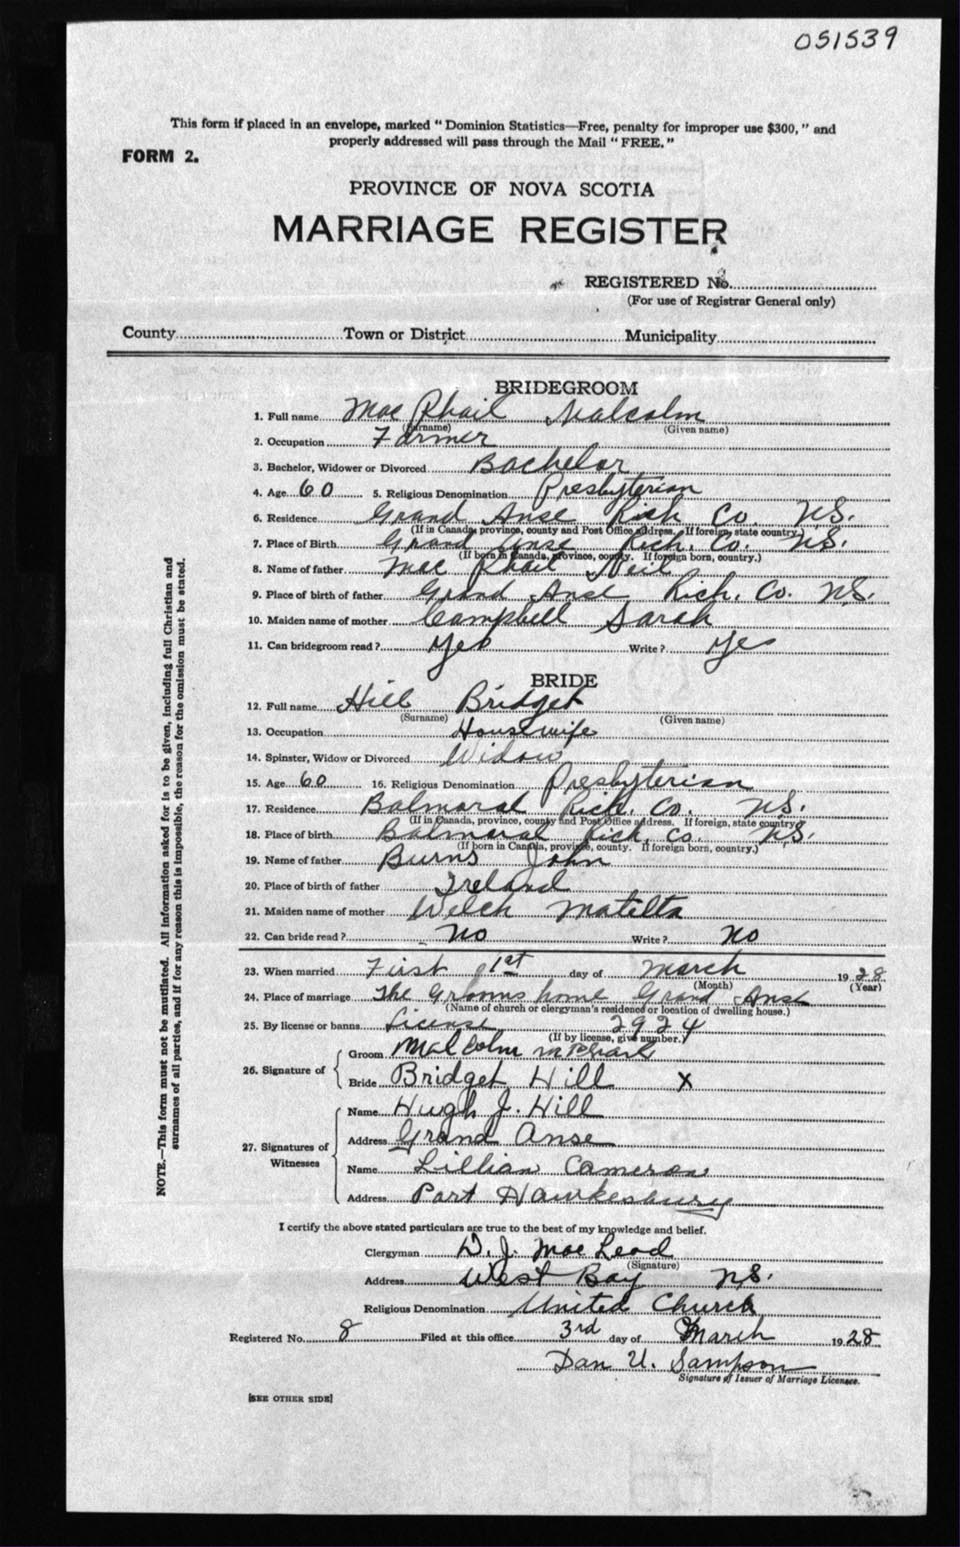 051539
This form if placed in an envelope, marked " Dominion Statistics—Free, penalty for improper use $300, " and
properly addressed will pass through the Mail " FREE. "
FORM 2.
PROVINCE OF NOVA SCOTIA
MARRIAGE REGISTER
REGISTERED No.
(For use of Registrar General only)
County Town or District Municipality
BRIDEGROOM
1. Full name Mac Phail Malcolm
(Surname) (Given name)
2. Occupation Farmer
3. Bachelor, Widower or Divorced Bachelor
4. Age 60 5. Religious Denomination Presbyterian
6. Residence Grand Anse Rich Co. N.S.
(If in Canada, province, county and Post Office address. If foreign, state country.)
7. Place of Birth Grand Anse Rich. Co. N.S.
(If born in Canada, province, county. If foreign born, country.)
8. Name of father Mac Phail Neil
9. Place of birth of father Grand Anse Rich. Co. N.S.
10. Maiden name of mother Campbell Sarah
11. Can bridegroom read ? Yes Write ? Yes
BRIDE
12. Full name Hill Bridget
(Surname) (Given name)
13. Occupation Housewife
14. Spinster, Widow or Divorced Widow
15. Age 60 16. Religious Denomination Presbyterian
17. Residence Balmoral Rich. Co. N.S.
(If in Canada, province, county and Post Office address. If foreign, state country.)
18. Place of birth Balmoral Rich. Co. N.S.
(If born in Canada, province, county. If foreign born, country.)
19. Name of father Burns John
20. Place of birth of father Ireland
21. Maiden name of mother Welch Matelta
22. Can bride read ? No Write ? No
23. When married First 1st day of March 1928
(Month) (Year)
24. Place of marriage The Grooms home Grand Anse
(Name of church or clergyman's residence or location of dwelling house.)
25. By license or banns License 2924
(If by license, give number.)
26. Signature of Groom Malcolm McPhail
Bride Bridget Hill X
27. Signatures of Witnesses Name Hugh J. Hill
Address Grand Anse
Name Lillian Cameron
Address Port Hawkesbury
I certify the above stated particulars are true to the best of my knowledge and belief.
Clergyman D. J. MacLeod
(Signature)
Address West Bay N.S.
Religious Denomination United Church
Registered No. 8 Filed at this office 3rd day of March 1928
Dan U. Sampson
Signature of Issuer of Marriage Licenses.
[SEE OTHER SIDE]
NOTE.—This form must not be mutilated. All information asked for is to be given, including full Christian and
surnames of all parties, and if for any reason this is impossible, the reason for the omission must be stated.